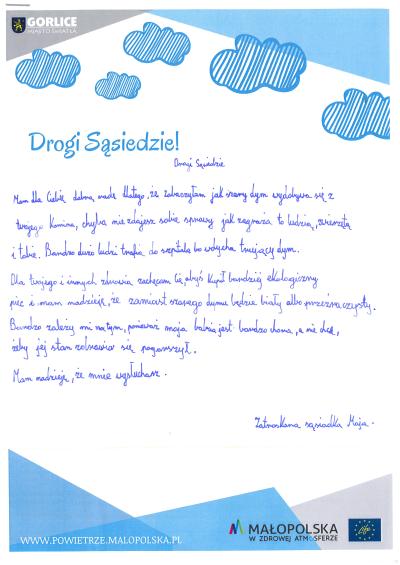 GORLICE
MIASTO ŚWIATŁA
Drogi Sąsiedzie!
Drogi Sąsiedzie
Mam dla Ciebie dobrą radę dlatego, że zobaczyłam jak szary dym wydobywa się z
twojego komina, chyba nie zdajesz sobie sprawy jak zagraża to ludzią, zwierzętą
i tobie. Bardzo dużo ludzi trafia do szpitala bo wdycha trujący dym.
Dla twojego i innych zdrowia zachęcam Cię, abyś kupił bardziej ekologiczny
piec i mam nadzieję, że zamiast szarego dymu będzie biały albo przeźroczysty.
Bardzo zależy mi na tym, ponieważ moja babcia jest bardzo chora, a nie chcę,
żeby jej stan zdrowia się pogorszył.
Mam nadzieję, że mnie wysłuchasz.
Zatroskana sąsiadka Maja.
WWW.POWIETRZE.MALOPOLSKA.PL
MAŁOPOLSKA
W ZDROWEJ ATMOSFERZE